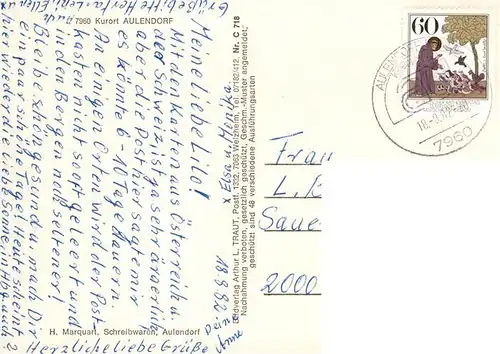 Grüße bitte Herta, Leni, Ellen u.
7960 Kurort AULENDORF
Meine liebe Lilo!
Mit den Karten aus Österreich u.
der Schweiz ist ja sehr ärgerlich
aber die Post hier sagte mir
es könnte 6-10 Tage dauern.
An einigen Orten wird der Post-
kasten nicht so oft geleert und
in den Bergen noch seltener!
Bleibe schön gesund u. mach Dir
ein paar schöne Tage! Heute scheint
hier wieder die liebe Sonne.
Herzliche liebe Grüße
Deine
Anne
18.9.82
H. Marquart, Schreibwaren, Aulendorf
Bildverlag Arthur L. TRAUT, Postf. 1332, 7063 Welzheim, Tel. 07182/412, Nr. C 718
Nachahmung verboten, gesetzlich geschützt, Geschm.-Muster angemeldet,
geschützt sind 48 verschiedene Ausführungsarten
60
AULENDORF
7960
Frau
L. K
Saue
2000